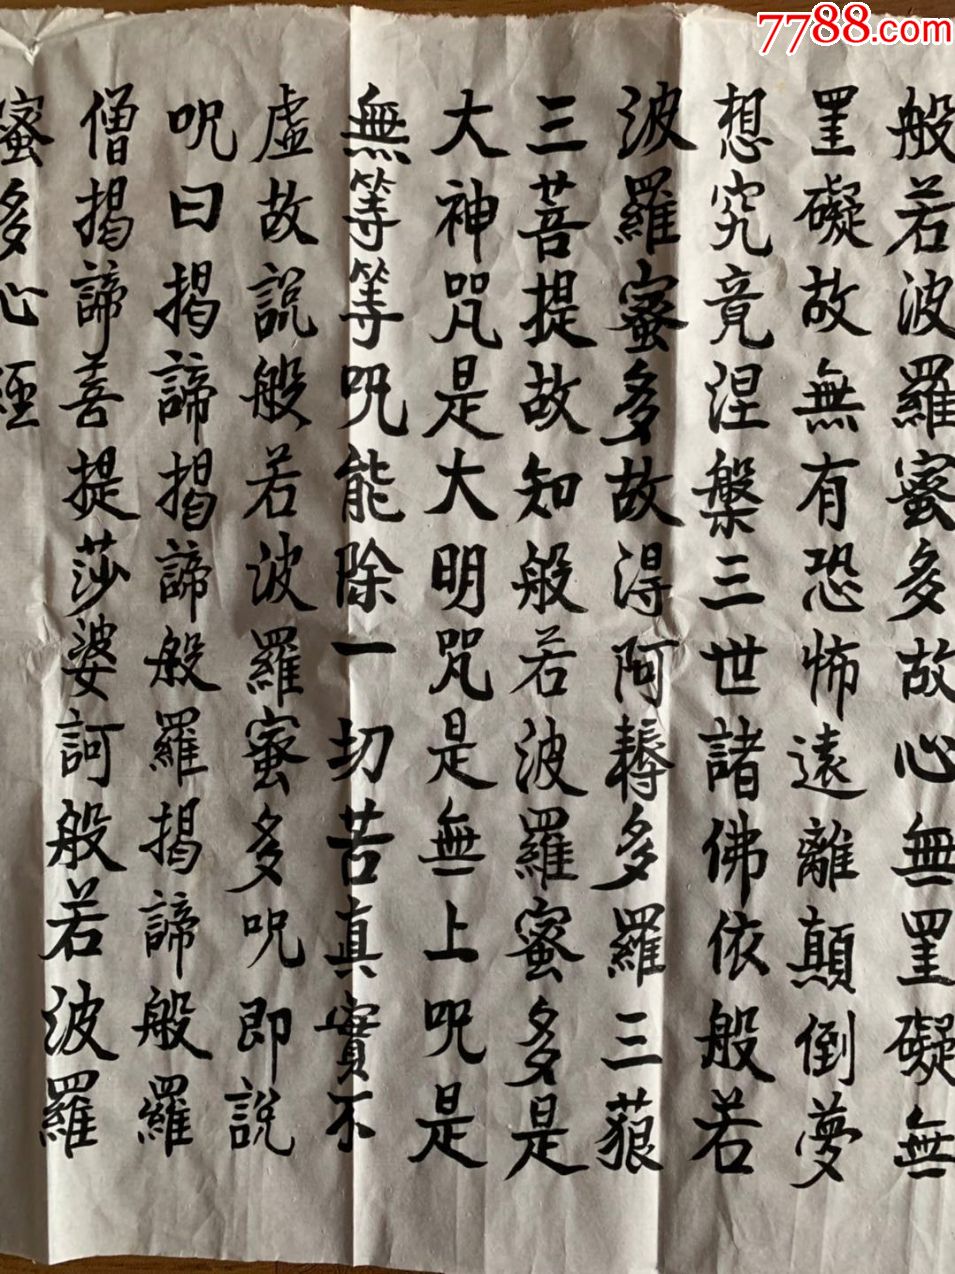 7788.com
般若波羅蜜多故心無罣礙無
罣礙故無有恐怖遠離顛倒夢
想究竟涅槃三世諸佛依般若
波羅蜜多故得阿耨多羅三藐
三菩提故知般若波羅蜜多是
大神咒是大明咒是無上呪是
無等等呪能除一切苦真實不
虛故説般若波羅蜜多呪即説
呪曰揭諦揭諦般羅揭諦般羅
僧揭諦菩提莎婆訶般若波羅
蜜多心經